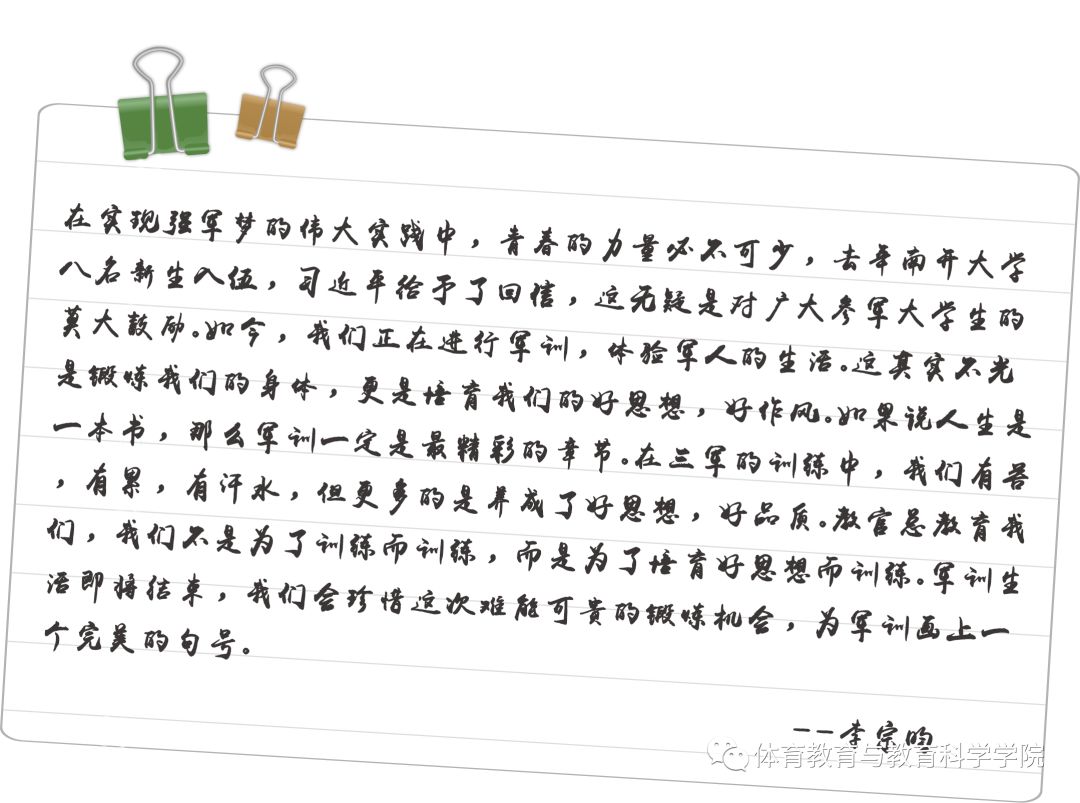 在实现强军梦的伟大实践中，青春的力量必不可少，去年南开大学
八名新生入伍，习近平给予了回信，这无疑是对广大参军大学生的
莫大鼓励。如今，我们正在进行军训，体验军人的生活。这其实不光
是锻炼我们的身体，更是培育我们的好思想，好作风。如果说人生是
一本书，那么军训一定是最精彩的章节。在三军的训练中，我们有苦
，有累，有汗水，但更多的是养成了好思想，好品质。教官总教育我
们，我们不是为了训练而训练，而是为了培育好思想而训练。军训生
活即将结束，我们会珍惜这次难能可贵的锻炼机会，为军训画上一
个完美的句号。
--李宗昀
体育教育与教育科学学院